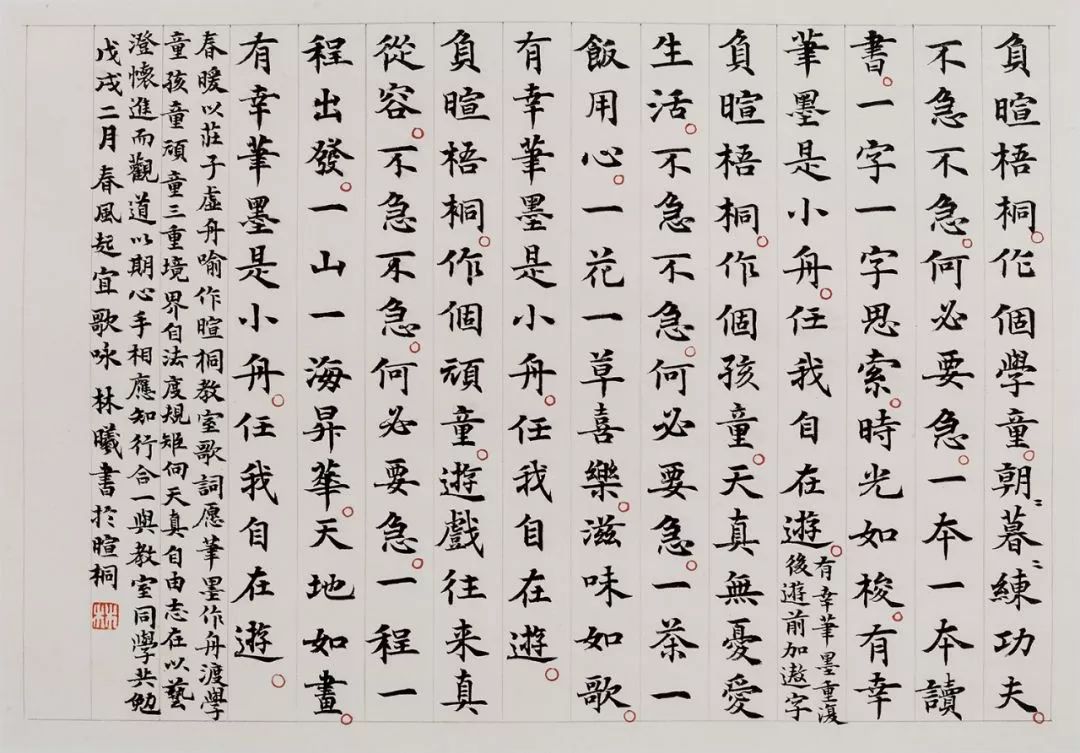 負暄梧桐。作個學童。朝〻暮〻練功夫。
不急不急。何必要急。一本一本讀
書。一字一字思索。時光如梭。有幸
筆墨是小舟。任我自在遊。
有幸筆墨重復
後遊前加遨字
負暄梧桐。作個孩童。天真無憂愛
生活。不急不急。何必要急。一茶一
飯用心。一花一草喜樂。滋味如歌。
有幸筆墨是小舟。任我自在遊。
負暄梧桐。作個頑童。遊戲往来真
從容。不急不急。何必要急。一程一
程出發。一山一海昇華。天地如畫。
有幸筆墨是小舟。任我自在遊。
春暖以莊子虛舟喻作暄桐教室歌詞愿筆墨作舟渡學
童孩童頑童三重境界自法度規矩向天真自由志在以藝
澄懷進而觀道以期心手相應知行合一與教室同學共勉
戊戌二月 春風起宜歌咏 林曦書於暄桐
林